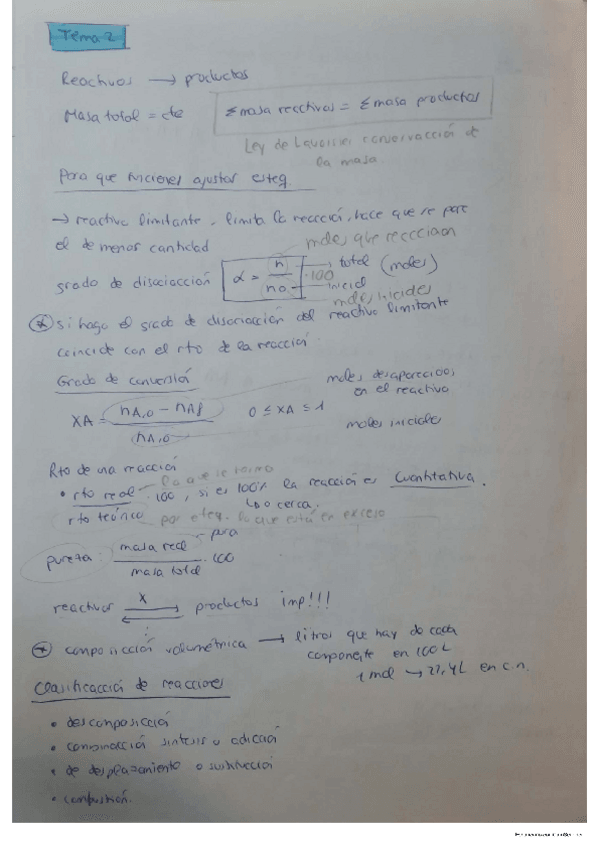 Tema 2
Reactivos → productos
Masa total = cte
Σ masa reactivos = Σ masa productos
Ley de Lavoisier conservación de
la masa.
Para que funcionen ajustar esteq.
→ reactivo limitante, limita la reacción, hace que se pare
el de menos cantidad
moles que reaccionan
grado de disociación α = n / n0 · 100
total (moles)
inicial
moles iniciales
* si hago el grado de disociación del reactivo limitante
coincide con el rto de la reacción.
Grado de conversión
moles desaparecidos
en el reactivo
XA = nA,0 - nAf / nA,0
0 ≤ XA ≤ 1
moles iniciales
Rto de una reacción
lo que se forma
• rto real · 100, si es 100% la reacción es cuantitativa.
↳ o cerca.
rto teórico por esteq. lo que está en exceso
pureza: masa real pura / masa total · 100
reactivos x ⇌ productos imp!!!
* composición volumétrica → litros que hay de cada
componente en 100 L
1 mol → 22,4 L en c.n.
Clasificación de reacciones
• descomposición
• combinación síntesis o adición
• de desplazamiento o sustitución
• combustión.